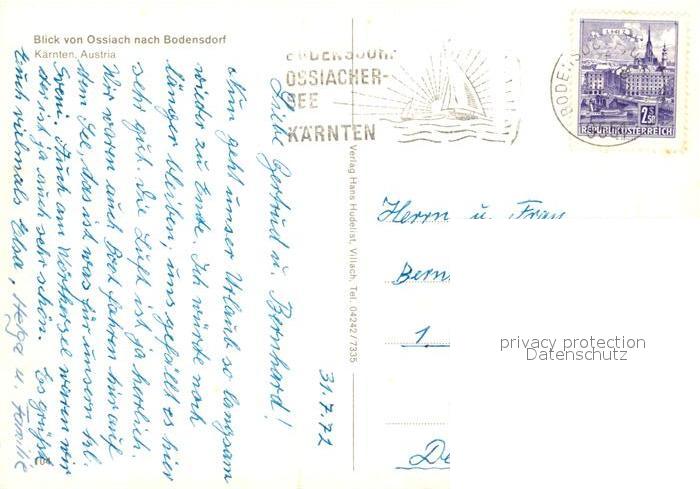 Blick von Ossiach nach Bodensdorf
Kärnten, Austria
BODENSDORF
OSSIACHER-
SEE
KÄRNTEN
LINZ
2.50
REPUBLIK ÖSTERREICH
Verlag Hans Hudelist, Villach, Tel. 04242/7335
31.7.72
Liebe Gertrud u. Bernhard!
Nun geht unser Urlaub so langsam
wieder zu Ende. Ich würde noch
länger bleiben, uns gefällt es hier
sehr gut. Die Luft ist ja herrlich.
Wir waren auch Boot fahren hier auf
dem See, das ist was für unsern kl.
Sveni. Auch am Wörthersee waren wir
der ist ja auch sehr schön. Es grüßt
Euch vielmals Elsa, Helga u. Familie
Herrn u. Frau
Bern
1
De
privacy protection
Datenschutz